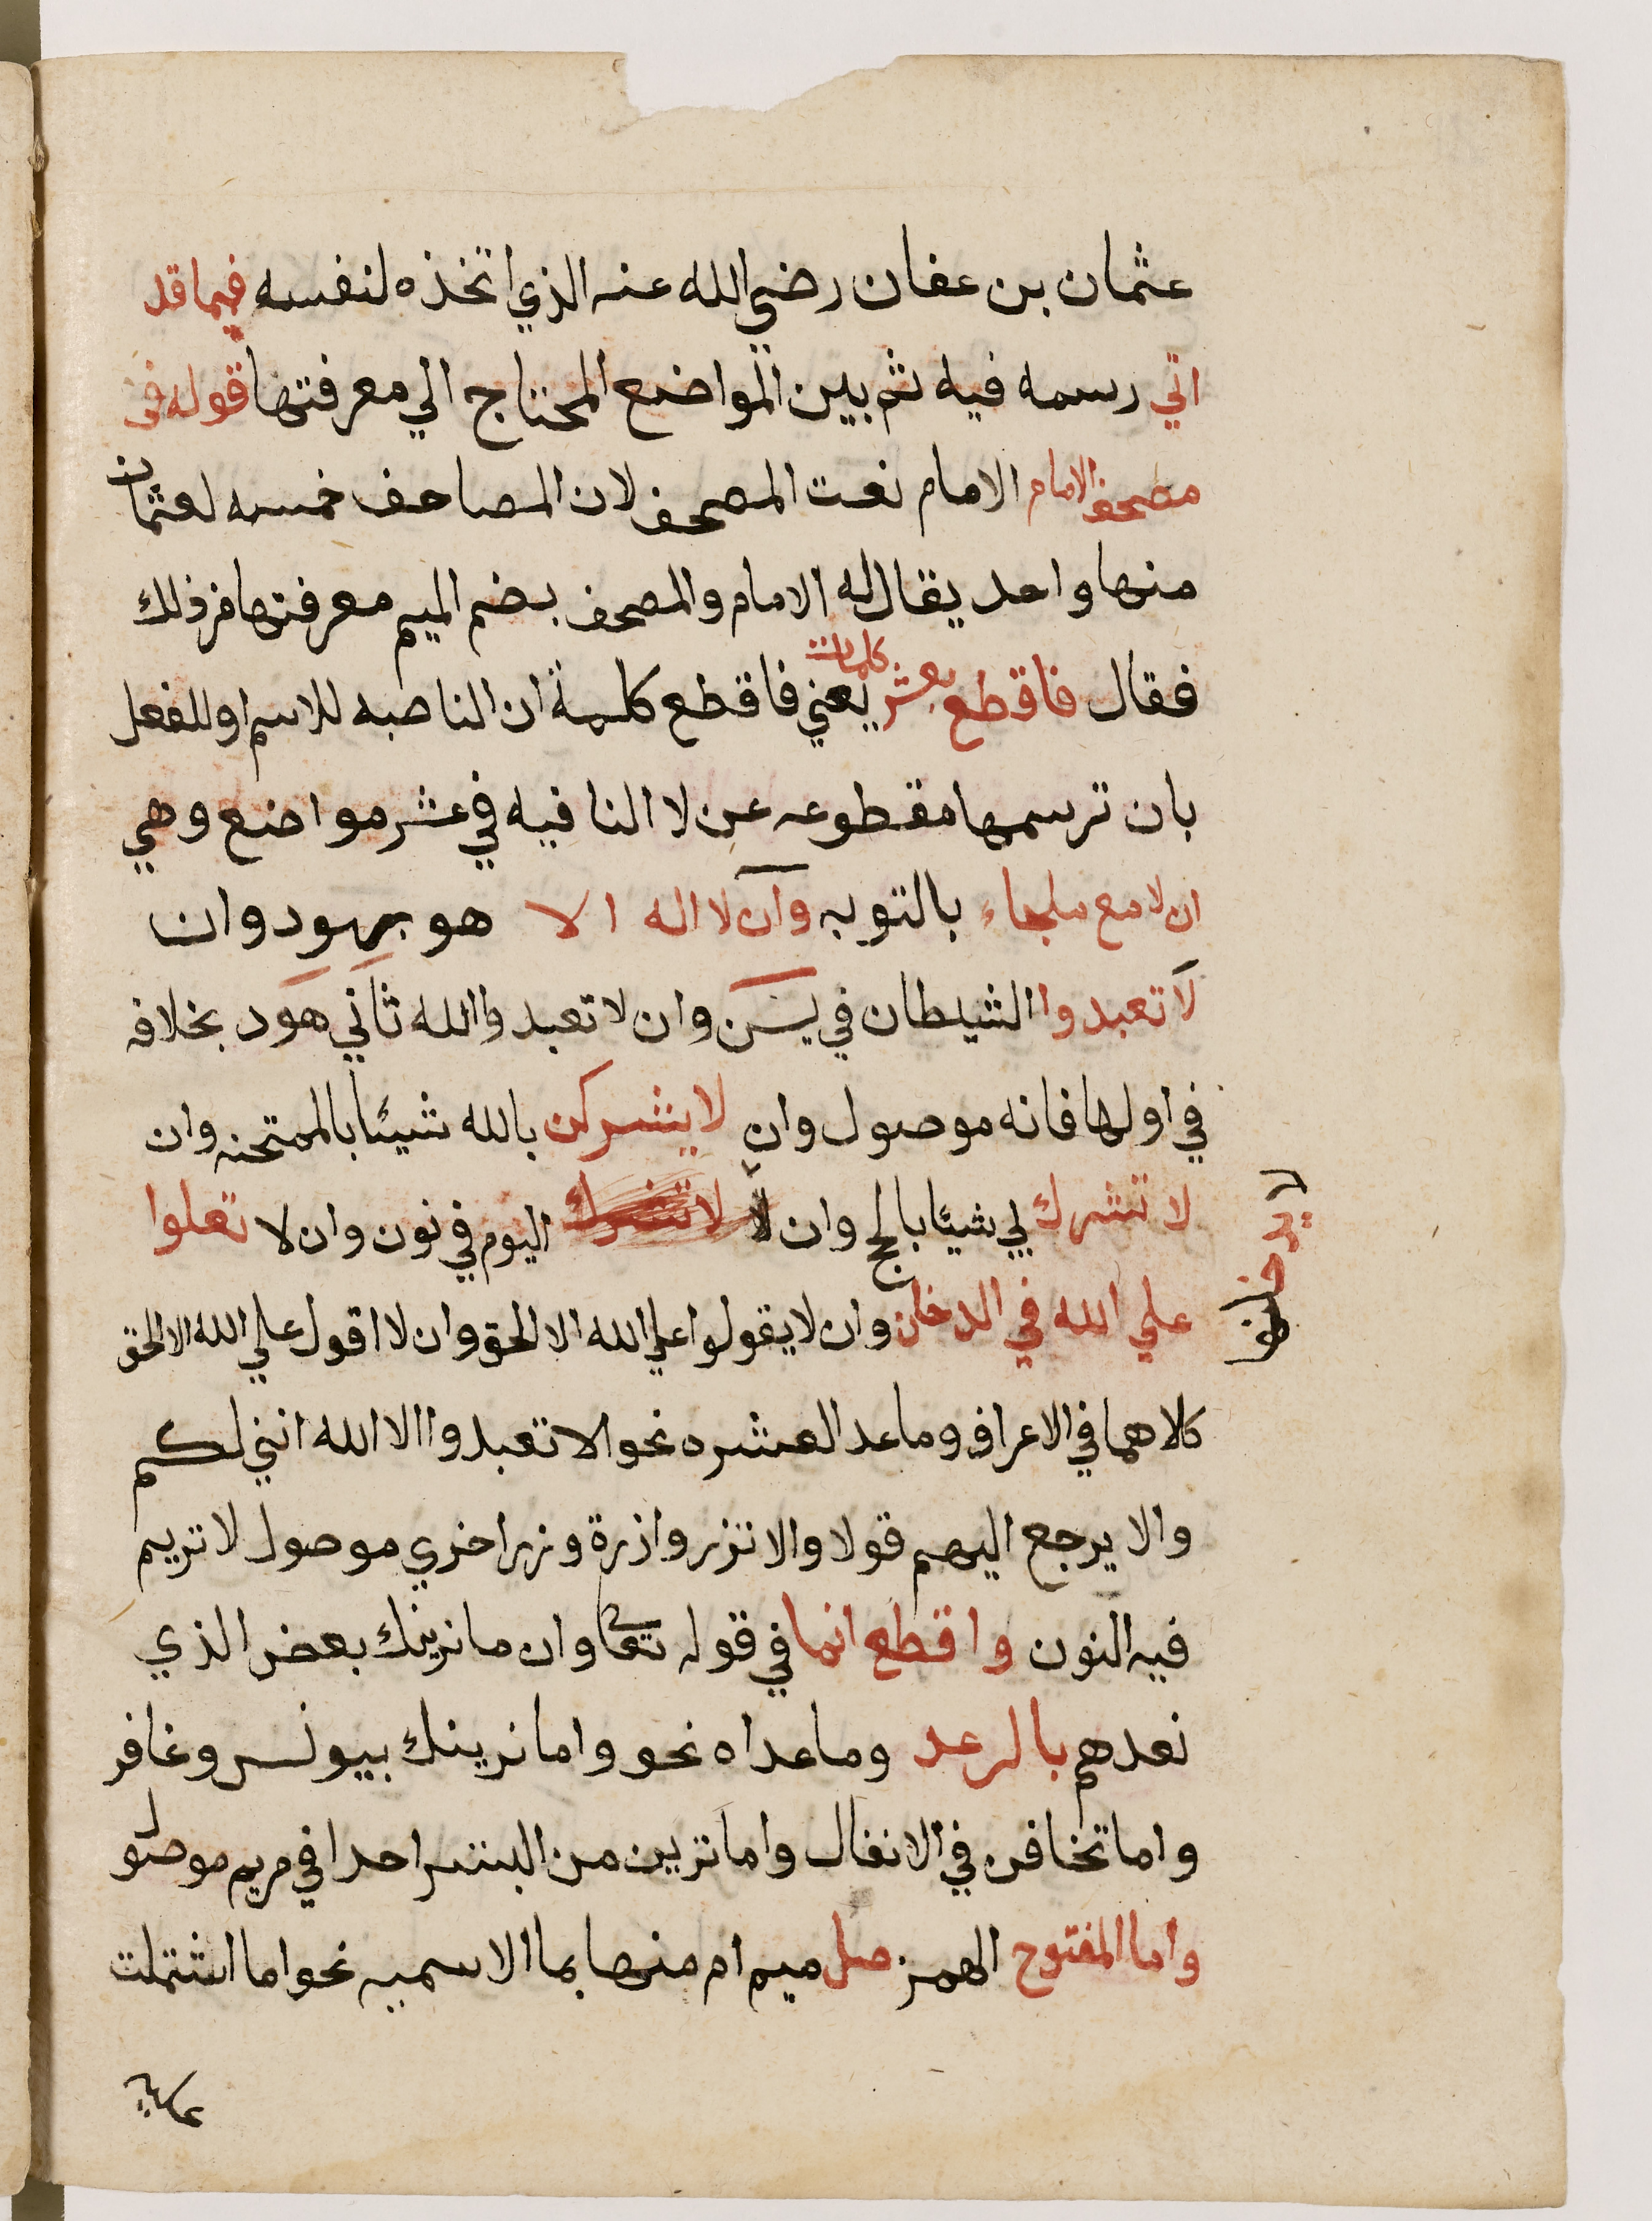 عثمان بن عفان رضي الله عنه الذي اتخذه لنفسه فيما قد
اتي رسمه فيه ثم بين المواضع المحتاج الي معرفتها قوله في
مصحف الامام الامام نعت المصحف لان المصاحف خمسه لعثمان
منها واحد يقال له الامام والمصحف بضم الميم معرفتها من ذلك
فقال فاقطع بعشر كلمات يعني فاقطع كلمة ان الناصبه للاسم او للفعل
بان ترسمها مقطوعه عن لا النافيه في عشر مواضع وهي
ان لا مع ملجاء بالتوبه وان لا اله الا هو بهود وان
لا تعبدوا الشيطان في يسن وان لا تعبدوا الله ثاني هود بخلافه
في اولها فانه موصول وان لا يشركن بالله شيئا بالممتحنه وان
لا تشرك لي شيئا بالحج وان لا اليوم في نون وان لا تعلوا
لا يدخلنها
علي الله في الدخان وان لا يقولوا علي الله الا الحق وان لا اقول علي الله الا الحق
كلاهما في الاعراف وما عد العشره نحو الا تعبدوا الا الله انني لكم
والا يرجع اليهم قولا والا تزر وازرة وزر اخري موصول لا تريم
فيه النون واقطع انما في قوله تعا وان ما نرينك بعض الذي
نعدهم بالرعد وما عداه نحو واما نرينك بيونس وغافر
واما تخافن في الانفال واما ترين من البشر احدا في مريم موصول
واما المفتوح الهمز صل ميم ام منها بما الاسميه نحو اما اشتملت
عليه